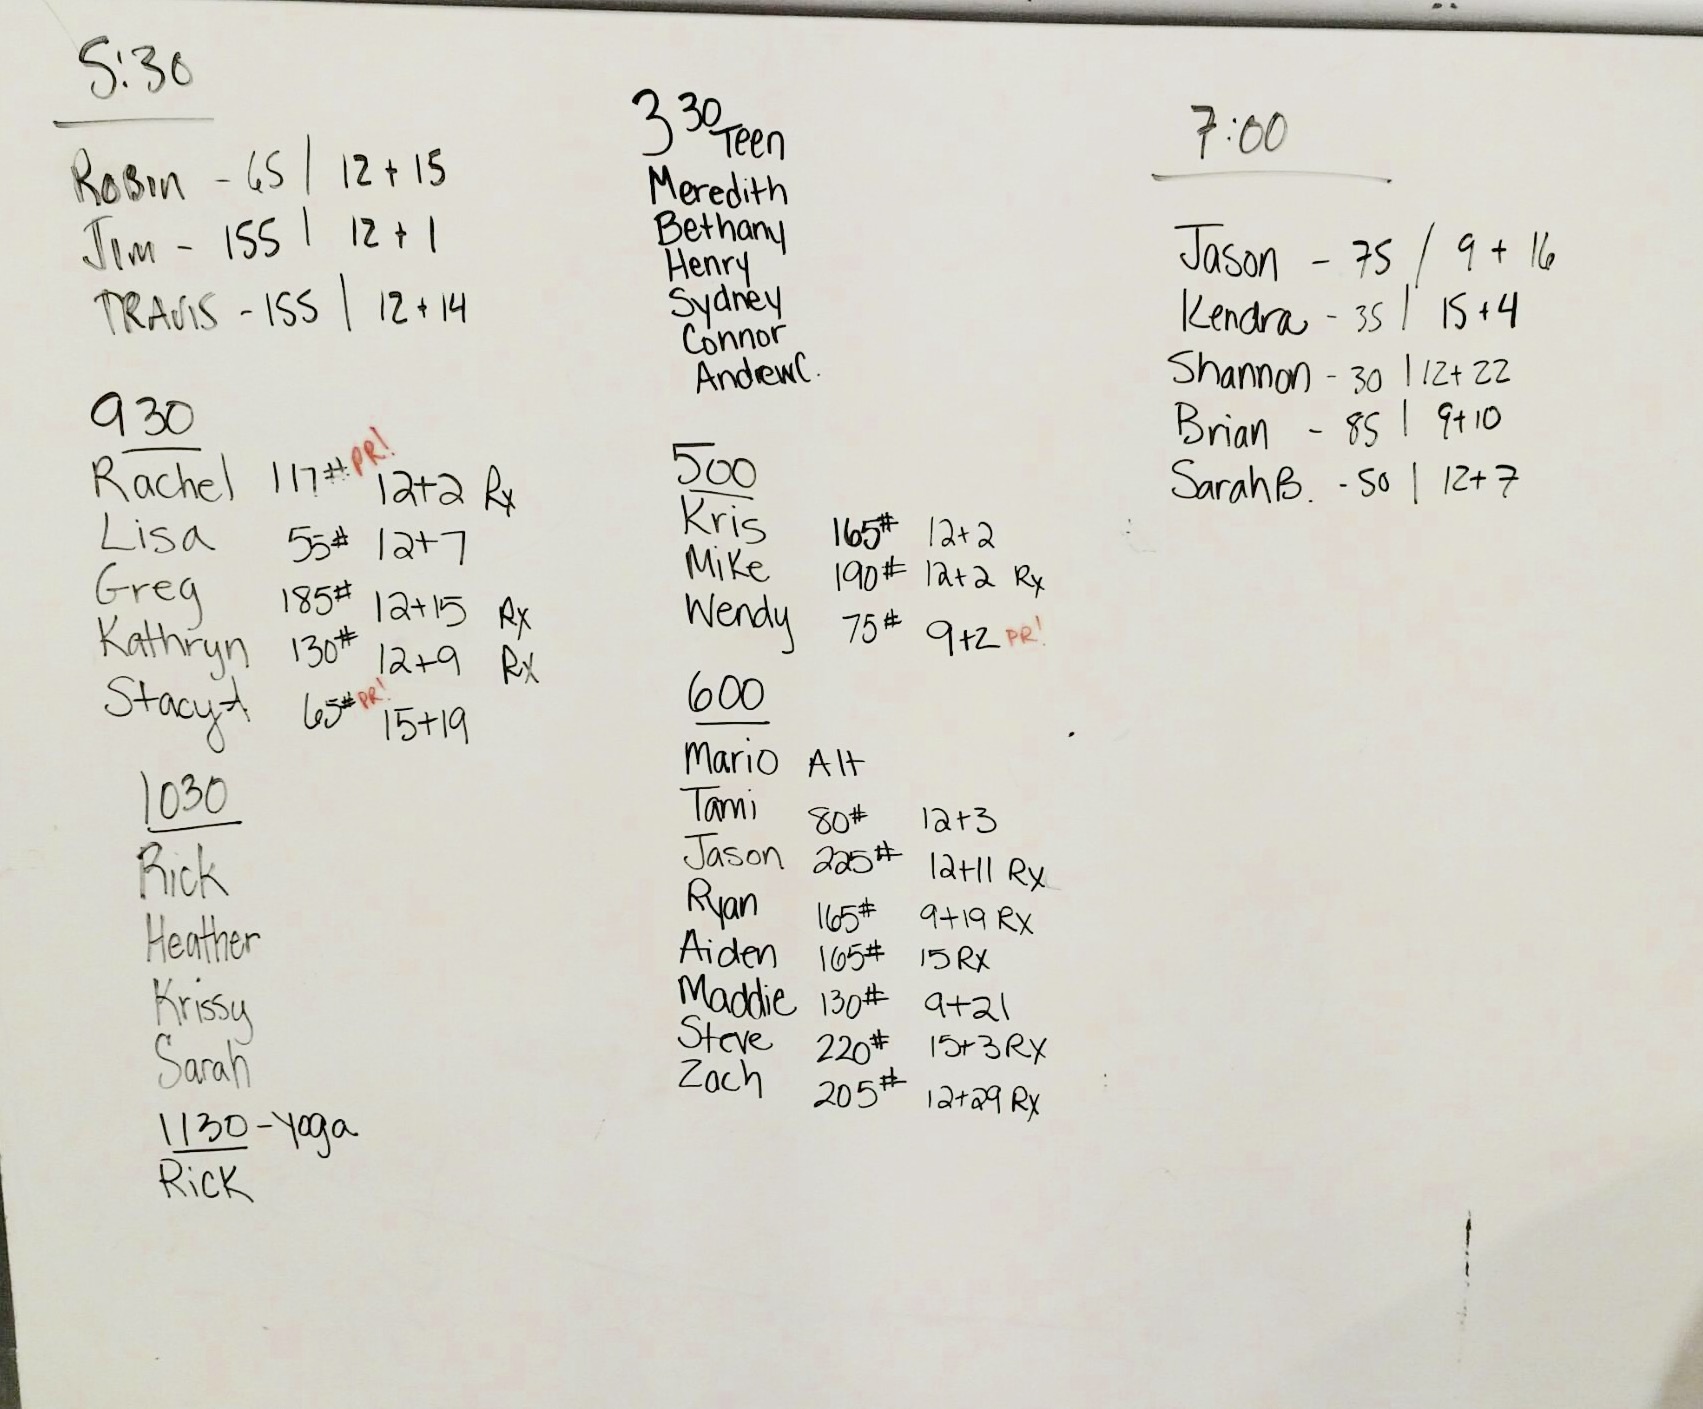 5:30
Robin - 65 | 12 + 15
Jim - 155 | 12 + 1
TRAVIS - 155 | 12 + 14
930
Rachel 117# PR! 12+2 Rx
Lisa 55# 12+7
Greg 185# 12+15 Rx
Kathryn 130# 12+9 Rx
Stacy 65# PR! 15+19
1030
Rick
Heather
Krissy
Sarah
1130 - Yoga
Rick
3 30 Teen
Meredith
Bethany
Henry
Sydney
Connor
Andrew C.
500
Kris 165# 12+2
Mike 190# 12+2 Rx
Wendy 75# 9+2 PR!
600
Mario Alt
Tami 80# 12+3
Jason 225# 12+11 Rx
Ryan 165# 9+19 Rx
Aiden 165# 15 Rx
Maddie 130# 9+21
Steve 220# 15+3 Rx
Zach 205# 12+29 Rx
7:00
Jason - 75 / 9 + 16
Kendra - 35 | 15+4
Shannon - 30 | 12+ 22
Brian - 85 | 9+10
Sarah B. - 50 | 12+ 7